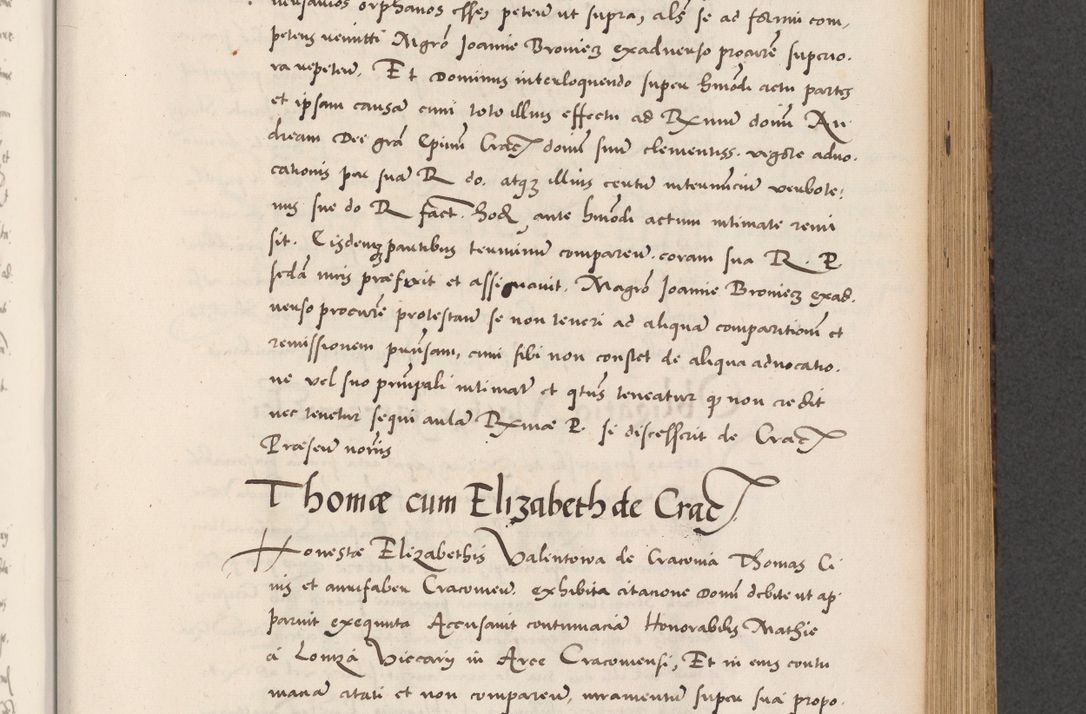 orphanos esse, petens ut supra, als se ad formi com
petens remitti Mgro Joannie Broniez exadverso procure superio
ra repeten. Et Dominus interloquendo super hmodi actu partes
et ipsam causam cum toto illius effectu ad Rxmum domi An
dream Dei gra Epium Crac domi sum clementiss. vigore advo
cationis per sua R do. atqz illius certum internuncium verbote
nus sue do R fact. hod ante hmodi actum intimate remi
sit. Eisdemqz partibus terminum comparen. coram sua R. P.
sedam iuris praefixit et assignavit. Magro Joannie Broniez exad
verso procure protestan se non teneri ad aliquam comparitionem et
remissionem prnsam, cum sibi non constet de aliqua advocatio
ne vel suo prnpali intimat et qtus teneatur qz non credit
nec tenetur sequi aulam Rxmae P. si discesserit de Crac
Praesen noriis
Thomae cum Elizabeth de Crac
Honestae Elizabethis Valentowa de Cracovia Thomas Ci
vis et aurifaber Cracovien. exhibita citacione Domi debite ut ap
paruit exequuta Accusavit contumaciam Honorabilis Mathie
a Lomza Viccarii in Arce Cracoviensi, Et in eius contu
maciam citati et non comparen, iuramentum super sua propo